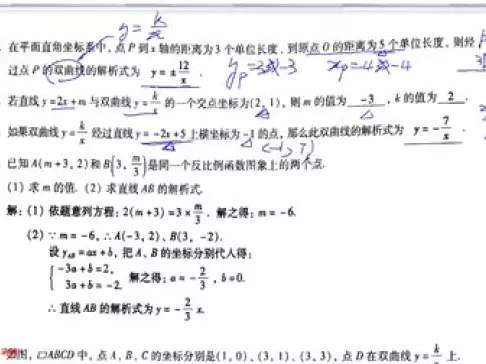 y = k/x
在平面直角坐标系中,点 P 到 x 轴的距离为 3 个单位长度,到原点 O 的距离为 5 个单位长度,则经
过点 P 的双曲线的解析式为 y = ± 12/x . yp=3或-3 xp=4或-4
若直线 y=2x+m 与双曲线 y= k/x 的一个交点坐标为(2,1),则 m 的值为 -3 ,k 的值为 2 .
如果双曲线 y= k/x 经过直线 y=-2x+5 上横坐标为-1 的点,那么此双曲线的解析式为 y=- 7/x .
(-1,7)
已知 A(m+3,2)和 B(3, m/3)是同一个反比例函数图象上的两个点.
(1) 求 m 的值. (2) 求直线 AB 的解析式.
解:(1) 依题意列方程:2(m+3)=3× m/3 . 解之得:m=-6.
(2) ∵ m=-6,∴ A(-3,2)、B(3,-2).
设 yAB=ax+b,把 A、B 的坐标分别代入得:
{ -3a+b=2,
3a+b=-2. 解之得:a=- 2/3 ,b=0.
∴ 直线 AB 的解析式为 y=- 2/3 x.
如图,□ABCD 中,点 A、B、C 的坐标分别是(1,0)、(3,1)、(3,3),点 D 在双曲线 y= k/x 上.